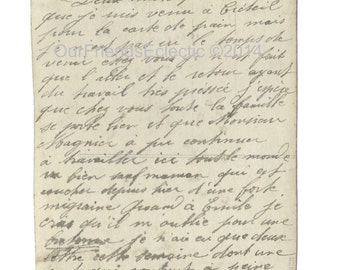 que je suis venu à Créteil
pour la carte de pain mais
le temps de
venir chez vous n' fait
que l'aller et le retour ayant
du travail très pressée j'espère
que chez vous toute la famille
se porte bien et que Monsieur
Magnier a pu continuer
à travailler ici tout le monde
va bien sauf maman qui est
coucher depuis hier d'une forte
migraine quand à Emile je
crois qu'il m'oublie pour une
je n'ai eu que deux
lettre cette semaine dont une
à peine
OurFriendsEclectic ©2014